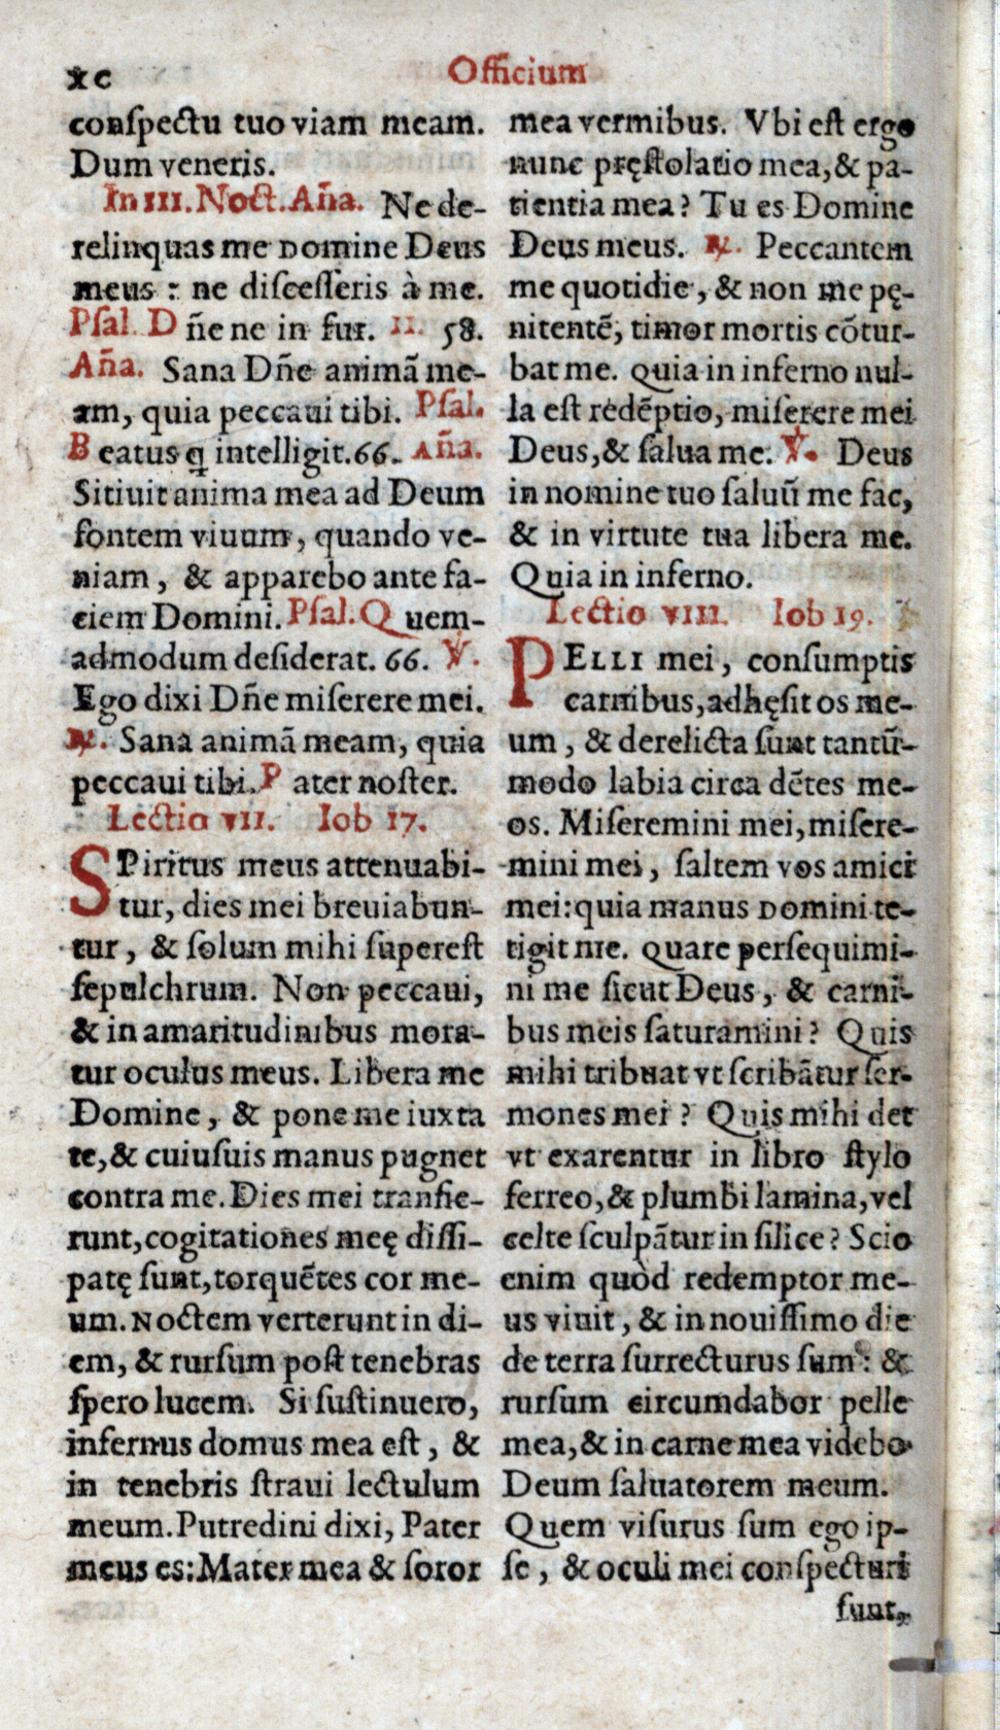 xc
Officium
conſpectu tuo viam meam.
Dum veneris.
In III. Noct. Aña. Ne de-
relinquas me Domine Deus
meus : ne diſceſſeris à me.
Pſal. Dñe ne in fur. II. 58.
Aña. Sana Dñe animã me-
am, quia peccaui tibi. Pſal.
Beatus q̃ intelligit. 66. Aña.
Sitiuit anima mea ad Deum
fontem viuum, quando ve-
niam, & apparebo ante fa-
ciem Domini. Pſal. Quem-
admodum deſiderat. 66. ℣.
Ego dixi Dñe miſerere mei.
℟. Sana animã meam, quia
peccaui tibi. Pater noſter.
Lectio VII. Iob 17.
SPiritus meus attenuabi-
tur, dies mei breuiabun-
tur, & ſolum mihi ſupereſt
ſepulchrum. Non peccaui,
& in amaritudinibus mora-
tur oculus meus. Libera me
Domine, & pone me iuxta
te, & cuiuſuis manus pugnet
contra me. Dies mei tranſie-
runt, cogitationes meę diſſi-
patę ſunt, torquẽtes cor me-
um. Noctem verterunt in di-
em, & rurſum poſt tenebras
ſpero lucem. Si ſuſtinuero,
infernus domus mea eſt, &
in tenebris ſtraui lectulum
meum. Putredini dixi, Pater
meus es: Mater mea & ſoror
mea vermibus. Vbi eſt ergo
nunc pręſtolatio mea, & pa-
tientia mea? Tu es Domine
Deus meus. ℟. Peccantem
me quotidie, & non me pę-
nitentẽ, timor mortis cõtur-
bat me. Quia in inferno nul-
la eſt redẽptio, miſerere mei
Deus, & ſalua me. ℣. Deus
in nomine tuo ſaluũ me fac,
& in virtute tua libera me.
Quia in inferno.
Lectio VIII. Iob 19.
PELLI mei, conſumptis
carnibus, adhęſit os me-
um, & derelicta ſunt tantũ-
modo labia circa dẽtes me-
os. Miſeremini mei, miſere-
mini mei, ſaltem vos amici
mei: quia manus Domini te-
tigit me. Quare perſequimi-
ni me ſicut Deus, & carni-
bus meis ſaturamini? Quis
mihi tribuat vt ſcribãtur ſer-
mones mei? Quis mihi det
vt exarentur in libro ſtylo
ferreo, & plumbi lamina, vel
celte ſculpãtur in ſilice? Scio
enim quòd redemptor me-
us viuit, & in nouiſſimo die
de terra ſurrecturus ſum: &
rurſum circumdabor pelle
mea, & in carne mea videbo
Deum ſaluatorem meum.
Quem viſurus ſum ego ip-
ſe, & oculi mei conſpecturi
ſunt,